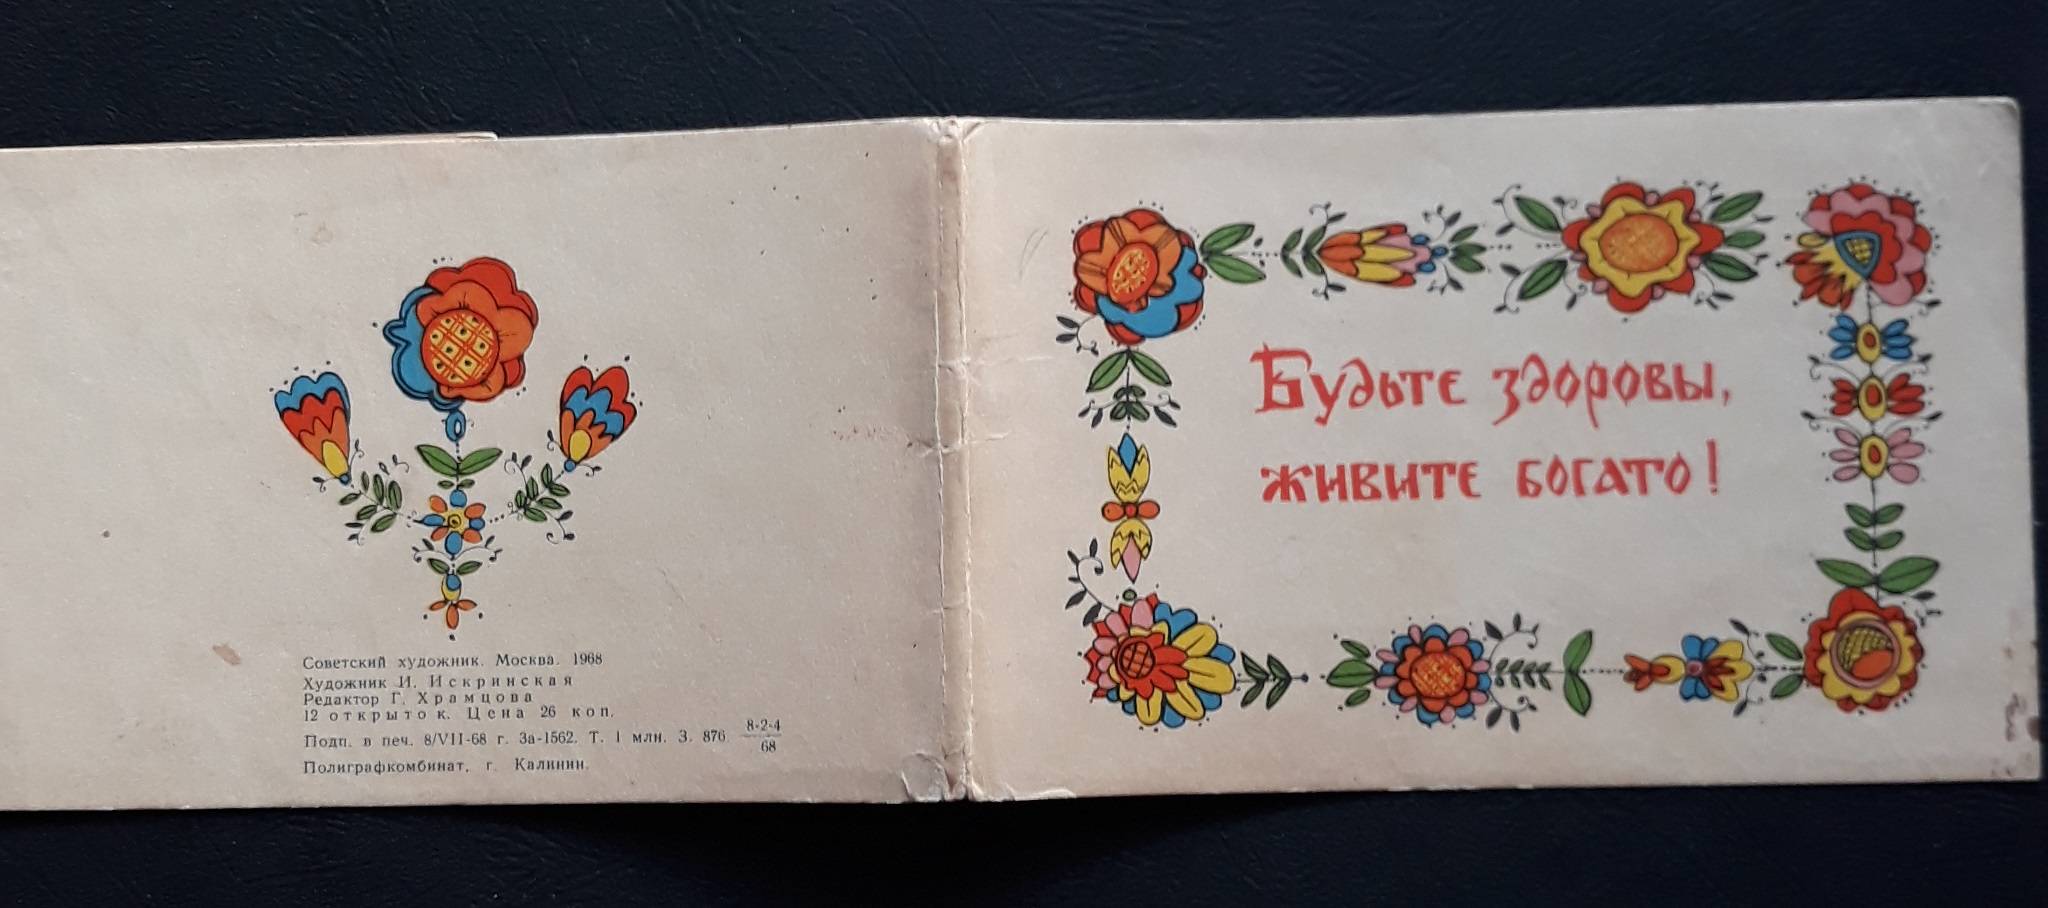 Советский художник. Москва. 1968
Художник И. Искринская
Редактор Г. Храмцова
12 открыток. Цена 26 коп.
Подп. в печ. 8/VII-68 г. За-1562. Т. 1 млн. З. 876 8-2-4/68
Полиграфкомбинат, г. Калинин.
Будьте здоровы,
живите богато!